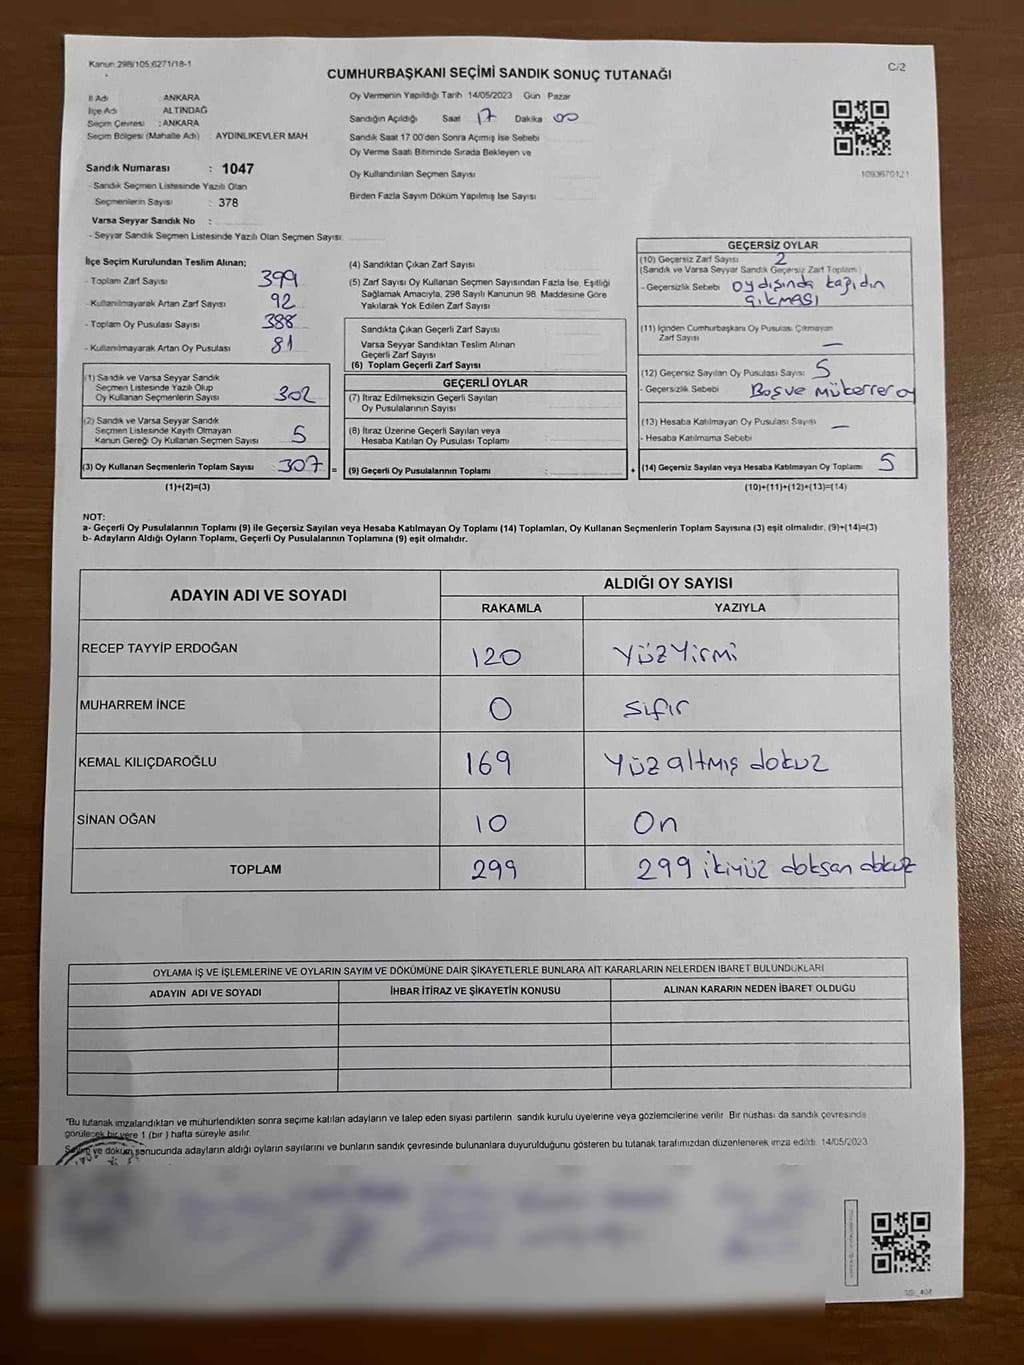 Kanun 298/105,6271/18-1
C/2
CUMHURBAŞKANI SEÇİMİ SANDIK SONUÇ TUTANAĞI
İl Adı : ANKARA
İlçe Adı : ALTINDAĞ
Seçim Çevresi : ANKARA
Seçim Bölgesi (Mahalle Adı) : AYDINLIKEVLER MAH
Sandık Numarası : 1047
- Sandık Seçmen Listesinde Yazılı Olan
Seçmenlerin Sayısı : 378
Varsa Seyyar Sandık No :
- Seyyar Sandık Seçmen Listesinde Yazılı Olan Seçmen Sayısı:
Oy Vermenin Yapıldığı Tarih 14/05/2023 Gün Pazar
Sandığın Açıldığı Saat 17 Dakika 00
Sandık Saat 17 00'den Sonra Açımış İse Sebebi
Oy Verme Saati Bitiminde Sırada Bekleyen ve
Oy Kullandırılan Seçmen Sayısı
Birden Fazla Sayım Döküm Yapılmış İse Sayısı
1093670121
İlçe Seçim Kurulundan Teslim Alınan;
- Toplam Zarf Sayısı 399
- Kullanılmayarak Artan Zarf Sayısı 92
- Toplam Oy Pusulası Sayısı 388
- Kullanılmayarak Artan Oy Pusulası 81
(1) Sandık ve Varsa Seyyar Sandık
Seçmen Listesinde Yazılı Olup
Oy Kullanan Seçmenlerin Sayısı 302
(2) Sandık ve Varsa Seyyar Sandık
Seçmen Listesinde Kayıtlı Olmayan
Kanun Gereği Oy Kullanan Seçmen Sayısı 5
(3) Oy Kullanan Seçmenlerin Toplam Sayısı : 307 =
(1)+(2)=(3)
(4) Sandıktan Çıkan Zarf Sayısı
(5) Zarf Sayısı Oy Kullanan Seçmen Sayısından Fazla İse, Eşitliği
Sağlamak Amacıyla, 298 Sayılı Kanunun 98. Maddesine Göre
Yakılarak Yok Edilen Zarf Sayısı
Sandıkta Çıkan Geçerli Zarf Sayısı
Varsa Seyyar Sandıktan Teslim Alınan
Geçerli Zarf Sayısı
(6) Toplam Geçerli Zarf Sayısı
GEÇERLİ OYLAR
(7) İtiraz Edilmeksizin Geçerli Sayılan
Oy Pusulalarının Sayısı :
(8) İtiraz Üzerine Geçerli Sayılan veya
Hesaba Katılan Oy Pusulası Toplamı :
(9) Geçerli Oy Pusulalarının Toplamı : +
GEÇERSİZ OYLAR
(10) Geçersiz Zarf Sayısı 2
(Sandık ve Varsa Seyyar Sandık Geçersiz Zarf Toplamı)
- Geçersizlik Sebebi oy dışında kağıdın
çıkması
(11) İçinden Cumhurbaşkanı Oy Pusulası Çıkmayan
Zarf Sayısı —
(12) Geçersiz Sayılan Oy Pusulası Sayısı 5
- Geçersizlik Sebebi Boş ve mükerrer oy
(13) Hesaba Katılmayan Oy Pusulası Sayısı —
- Hesaba Katılmama Sebebi
(14) Geçersiz Sayılan veya Hesaba Katılmayan Oy Toplamı 5
(10)+(11)+(12)+(13)=(14)
NOT:
a- Geçerli Oy Pusulalarının Toplamı (9) ile Geçersiz Sayılan veya Hesaba Katılmayan Oy Toplamı (14) Toplamları, Oy Kullanan Seçmenlerin Toplam Sayısına (3) eşit olmalıdır. (9)+(14)=(3)
b- Adayların Aldığı Oyların Toplamı, Geçerli Oy Pusulalarının Toplamına (9) eşit olmalıdır.
ADAYIN ADI VE SOYADI
ALDIĞI OY SAYISI
RAKAMLA YAZIYLA
RECEP TAYYİP ERDOĞAN 120 Yüz Yirmi
MUHARREM İNCE 0 Sıfır
KEMAL KILIÇDAROĞLU 169 Yüz altmış dokuz
SİNAN OĞAN 10 On
TOPLAM 299 299 ikiyüz doksan dokuz
OYLAMA İŞ VE İŞLEMLERİNE VE OYLARIN SAYIM VE DÖKÜMÜNE DAİR ŞİKAYETLERLE BUNLARA AİT KARARLARIN NELERDEN İBARET BULUNDUKLARI
ADAYIN ADI VE SOYADI İHBAR İTİRAZ VE ŞİKAYETİN KONUSU ALINAN KARARIN NEDEN İBARET OLDUĞU
*Bu tutanak imzalandıktan ve mühürlendikten sonra seçime katılan adayların ve talep eden siyasi partilerin sandık kurulu üyelerine veya gözlemcilerine verilir. Bir nüshası da sandık çevresinde
görülecek bir yere 1 (bir ) hafta süreyle asılır.
Sayım ve döküm sonucunda adayların aldığı oyların sayılarını ve bunların sandık çevresinde bulunanlara duyurulduğunu gösteren bu tutanak tarafımızdan düzenlenerek imza edildi. 14/05/2023